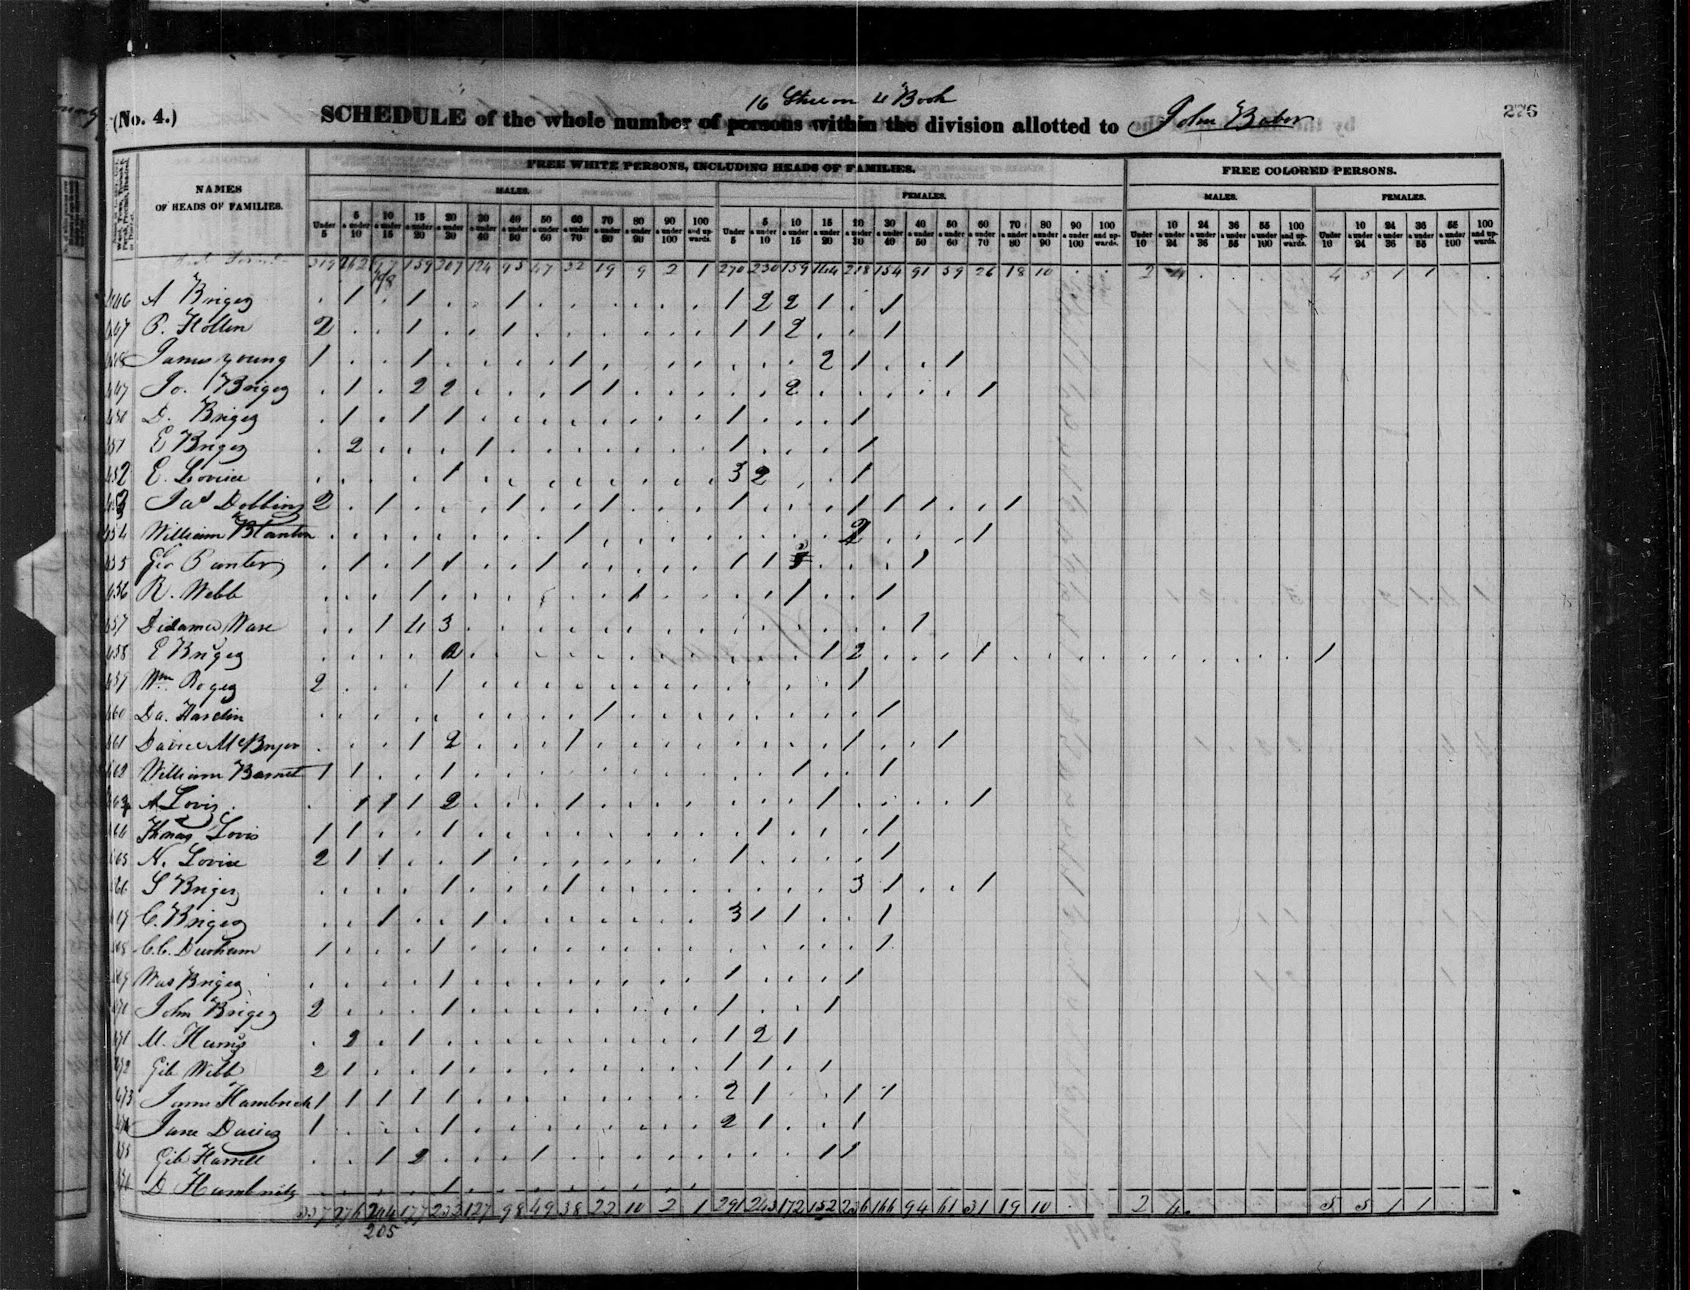 276
16 Shee on 4 Book
(No. 4.) SCHEDULE of the whole number of persons within the division allotted to John Bober
NAMES OF HEADS OF FAMILIES.
FREE WHITE PERSONS, INCLUDING HEADS OF FAMILIES.
FREE COLORED PERSONS.
MALES. FEMALES. MALES. FEMALES.
Under 5 | 5 & under 10 | 10 & under 15 | 15 & under 20 | 20 & under 30 | 30 & under 40 | 40 & under 50 | 50 & under 60 | 60 & under 70 | 70 & under 80 | 80 & under 90 | 90 & under 100 | 100 and upwards. | Under 5 | 5 & under 10 | 10 & under 15 | 15 & under 20 | 20 & under 30 | 30 & under 40 | 40 & under 50 | 50 & under 60 | 60 & under 70 | 70 & under 80 | 80 & under 90 | 90 & under 100 | 100 and upwards. | Under 10 | 10 & under 24 | 24 & under 36 | 36 & under 55 | 55 & under 100 | 100 and upwards. | Under 10 | 10 & under 24 | 24 & under 36 | 36 & under 55 | 55 & under 100 | 100 and upwards.
319 262 197 159 207 124 95 47 32 19 9 2 1 270 230 159 144 218 154 91 59 26 18 10 . . 2 4 . . . . 4 5 1 1 . .
198
446 A Briges . 1 . 1 . . 1 . . . . . . 1 2 2 1 . 1
447 P. Hollin 2 . . 1 . . 1 . . . . . . 1 1 2 . . 1
448 James Young 1 . . 1 . . . . 1 . . . . . . . 2 1 . . 1
Jo. Briges . 1 . 2 2 . . . 1 1 . . . . . 2 . . . . . 1
450 D. Briges . 1 . 1 1 . . . . . . . . 1 . . . 1
451 E Briges . 2 . . . 1 . . . . . . . 1 . . . 1
452 E. Lovice . . . . 1 . . . . . . . . 3 2 . . 1
453 Jas Dobbins 2 . 1 . . . 1 . . 1 . . . 1 . . . 1 1 1 . . 1
454 William Blanton . . . . . . . . 1 . . . . . . . . 2 . . . 1
455 Geo Panter . 1 . 1 1 . . 1 . . . . . 1 1 . . . 1
456 R. Webb . . . 1 . . . . . . 1 . . . . 1 . . 1
457 Didamia Ware . . 1 4 3 . . . . . . . . . . . . . . 1
458 E Briges . . . . 2 . . . . . . . . . . . 1 2 . . . 1 . . . . . . . . . . 1
459 Wm Roges 2 . . . 1 . . . . . . . . . . . . 1
460 Da. Hardin . . . . . . . . . 1 . . . . . . . . 1
461 David McBryer . . . 1 2 . . . 1 . . . . . . . . 1 . . 1
462 William Barnet 1 1 . . 1 . . . . . . . . . . 1 . . 1
463 A Lovis . 1 1 1 2 . . . 1 . . . . . . . 1 . . . . 1
464 Thomas Lovis 1 1 . . 1 . . . . . . . . . 1 . . . 1
465 N. Lovice 2 1 1 . . 1 . . . . . . . 1 . . . . 1
466 S Briges . . . . 1 . . . 1 . . . . . . . . 3 1 . . 1
C. Briges . . 1 . . 1 . . . . . . . 3 1 1 . . 1
468 C.C. Durham 1 . . . 1 . . . . . . . . . . . . . 1
469 Was Briges . . . . 1 . . . . . . . . 1 . . . 1
470 John Briges 2 . . . 1 . . . . . . . . 1 . . 1
471 M. Hams . 2 . 1 . . . . . . . . . 1 2 1
472 Gib Webb 2 1 . . 1 . . . . . . . . 1 1 . 1
473 James Hambrick 1 1 1 1 1 . . . . . . . . 2 1 . . 1 1
474 Jane Davies 1 . . . 1 . . . . . . . . 2 1 . . 1
475 Gib Harrell . . 1 2 . . . 1 . . . . . . . . 1 1
D Hambrick . . . . 1 . . . . . . . .
337 276 204 177 223 127 98 49 38 22 10 2 1 291 243 172 152 236 166 94 61 31 19 10 . . 2 4 5 5 1 1
205